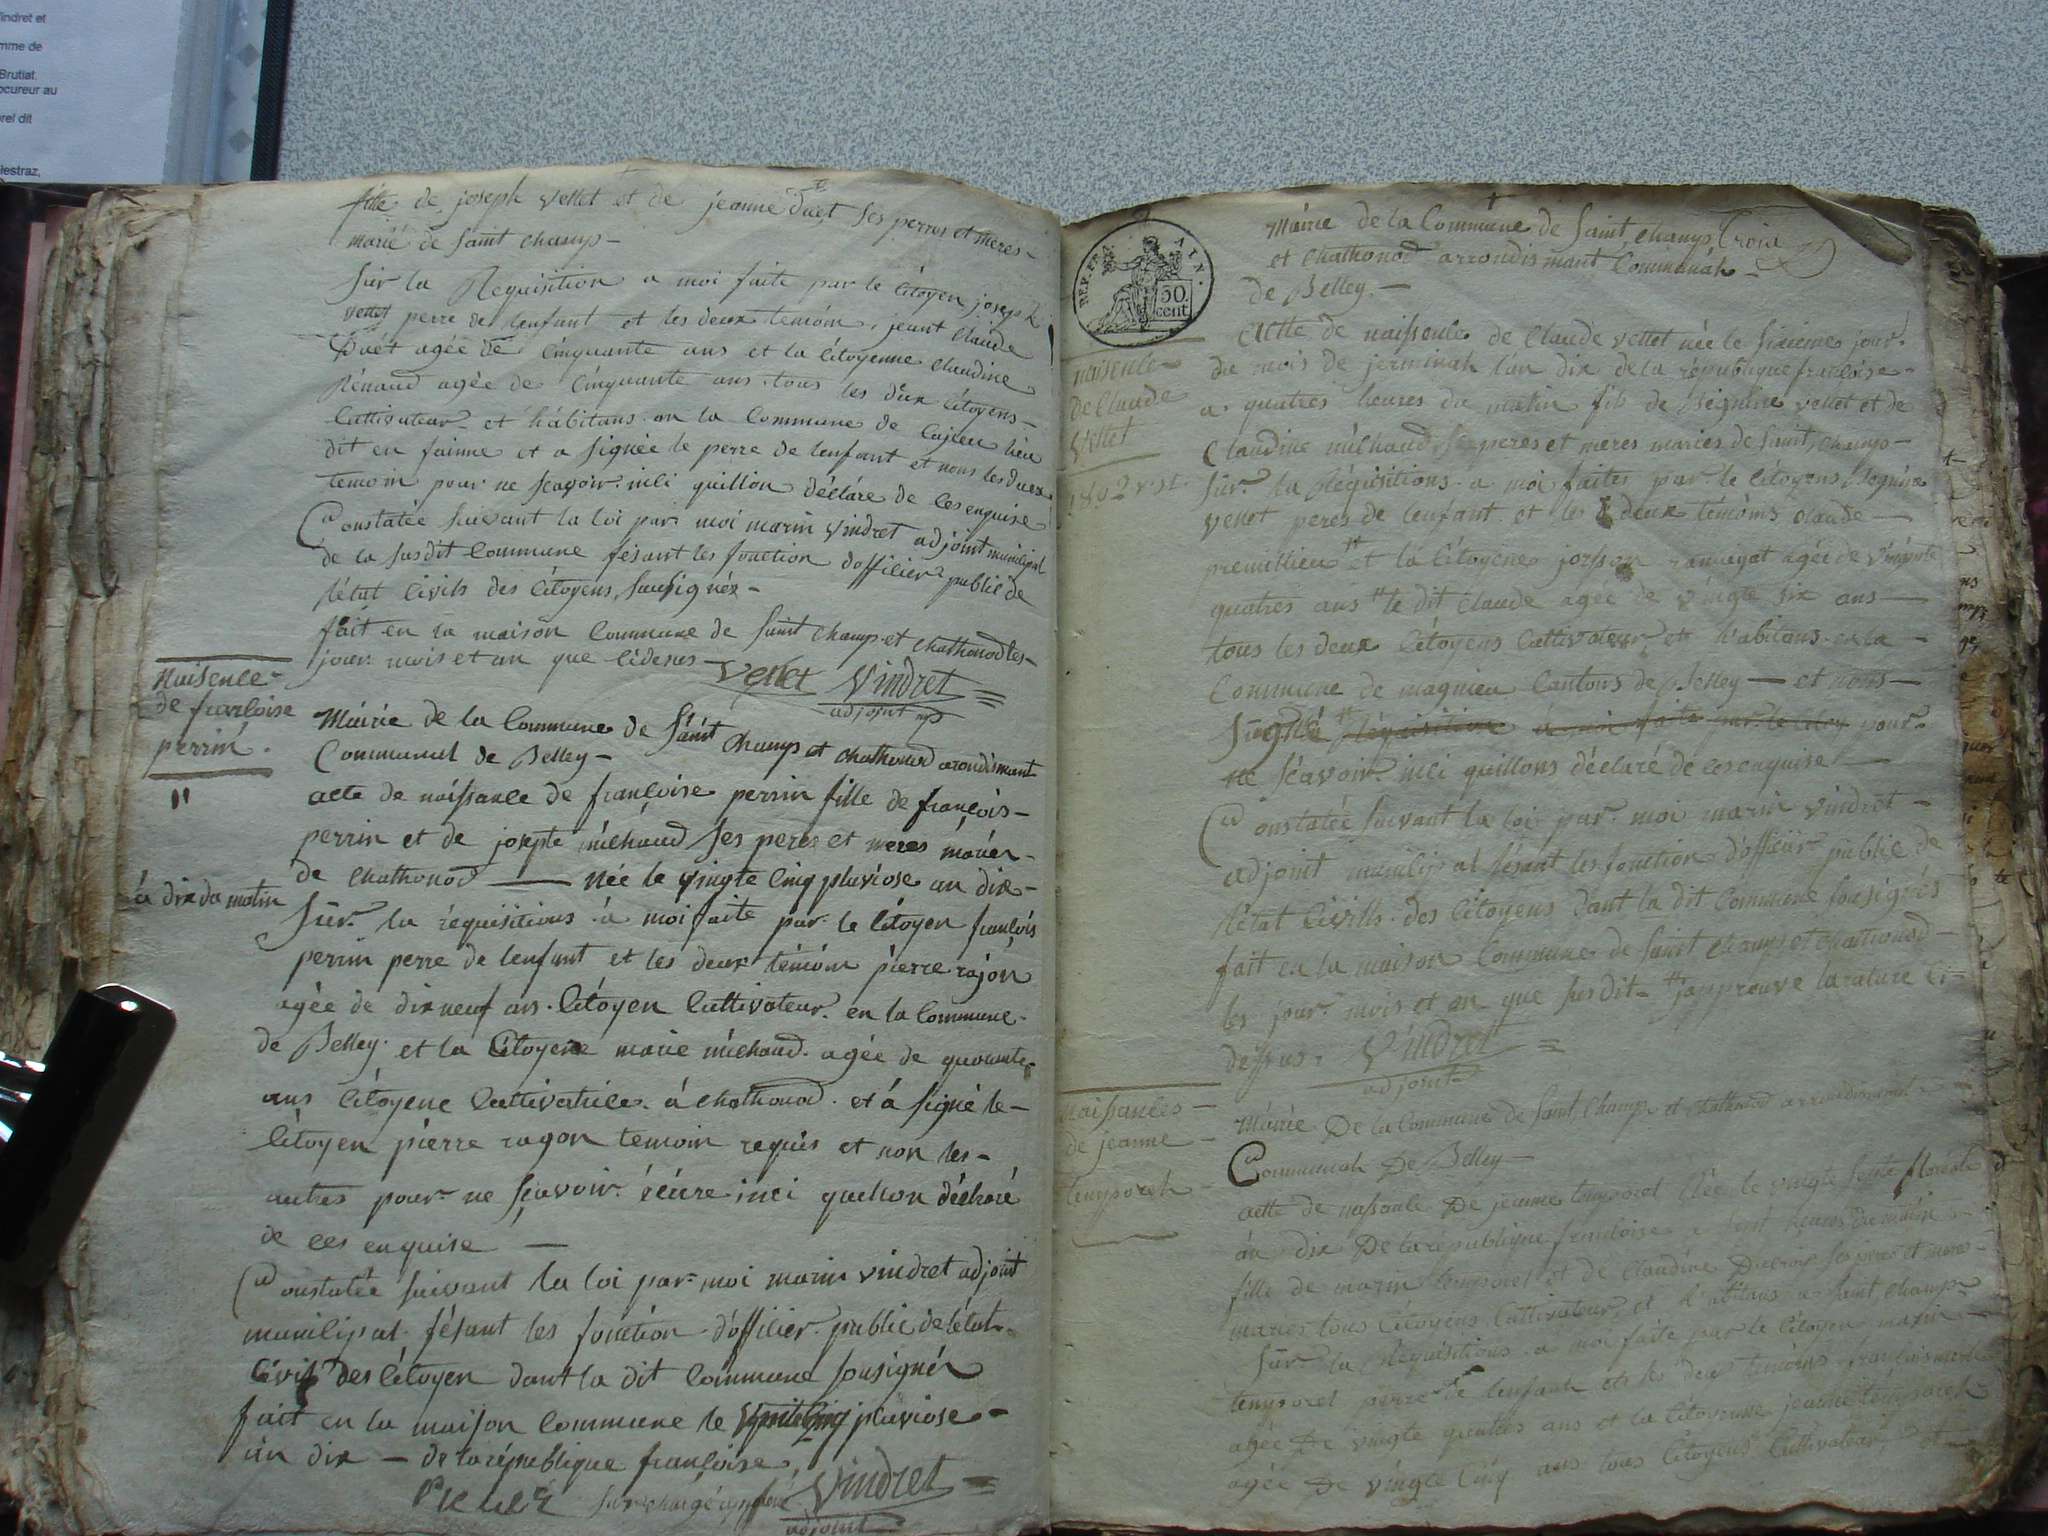 indret et
mme de
Brutiat,
ocureur au
rel dit
lestraz,
fille de joseph vettet et de jeanne duet ses perres et meres-
marié de saint champ-
sur la Requisition a moi faite par le Citoyen joseph
vettet perre de lenfant et les deux temoin, jeant Claude
Duét agée de Cinquante ans et la Citoyenne Claudine
Rénaud agée de Cinquante ans. tous les dúx Citoyens-
Cultivateur- et hábitans. an la Commune de
dit en et a signée le perre de lenfant et nous les duex
temoin pour ne scavoir. inli quillon déclare de Ces enquise
Constatée suivant la loi par moi marin vindret adjoint municipal
de la susdit Commune fésant les fonction dofficier publié de
létat Civils des Citoyens, sousignés-
fait en la maison Commune de saint champ et Chathonod les-
jour mois et an que
vettet vindret
adjoint
Naisence-
de francoise
perrin.
"
Mairie de la Commune de Saint Champ et Chathonod arondismant
Communal de Belley-
acte de naissance de françoise perrin fille de françois-
perrin et de josepte michaud ses peres et meres mariér-
de Chathonod — née le vingte Cinq pluviose an dix-
á dix du matin
Sur la réquisitions á moi faite par le Citoyen francois
perrin perre de lenfant et les deux témoin pierre rajon
agée de dixneuf ans. Citoyen Cultivateur. en la Commune-
de Belley. et la Citoyene marie michaud. agée de quarante-
ans Citoyene Cultivatrice. á Chathonod. et á signé le-
Citoyen pierre ragon temoin requis et non les-
autres pour ne sçavoir. écure inci quellon déclaré
de ces enquise —
Constatée suivant la loi par moi marin vindret adjoint
municipal. fésant les fonction d'officier. public de létat.
Civil des Citoyen dant la dit Commune sousignér
fait en la maison Commune le pluviose-
ún dix — de la république françoise,
surchargé vindret
adjoint
REP. FRA. AIN.
50.
cent
Mairie de la Commune de Saint, Champ, Croix
et Chathonod arrondismant Communah-
de Belley.-
Actte de naissence de Claude vettet née le sixieme jour.
du mois de jerminah lan dix de la république francoise-
a quatres heures du matin fils de vettet et de
Claudine michaud, ses peres et meres mariés de saint, champ-
naisence-
de Claude
Vettet
1802 v.st.
sur la Réquisitions a moi faites par le Citoyens
vettet peres de lenfant et les deux témoins claude —
premillieu et la Citoyene agée de vingte
quatres ans le dit Claude agée de vingte six ans —
tous les deux Citoyens Cultivateur, et h'abitans en la -
Commune de magnieu Cantons de Belley — et nons —
Signé Réquisitions a moi faite par le Citoy pour
ne scavoir inci quillons déclaré de Ces enquise —
Constatée suivant la loi par. moi marin vindret -
adjoint municipal fésant les fonction d'officier public de
l'état Civills. des Citoyens dant la dit Commune sousignés
fait en la maison Commune de saint champ et Chathonod-
les jour mois et an que susdit - japprouve larature Ci-
dessus. Vindret
adjoint
naissances-
de jeanne -
temporeh -
Mairie De la Commune de Saint, Champ et Chathonod arrondismant
Communah De Belley-
actte de De jeanne temporel née le vingte septe floréale
án dix De la république francloise a heures du matin
fille de marin temporel et de Claudine Ducroix ses peres et meres-
mariés tous Citoyens Cultivateur, et h'abitans a saint, champ-
sur la Réquisitions a moi faite par le Citoyen marin-
temporel perre de lenfant et les deux témoins francois
agée De vingte quatres ans et la Citoyenne jeanne temporel-
agée De vingte Cinq ans tous Citoyens Cultivateur, et-